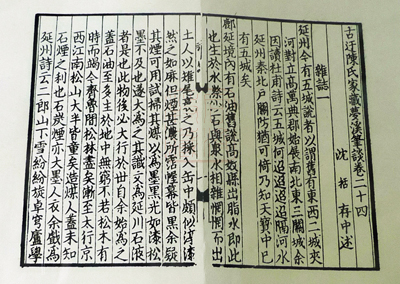 古迂陳氏家藏夢溪筆談卷二十四
沈括存中述
雜誌一
延州今有五城說者以謂舊有東西二城夾
河對立高萬興典郡始展南北東三關城余
因讀杜甫詩云五城何迢迢迢迢隔河水
延州秦北戶關防猶可倚乃知天寶中已
有五城矣
鄜延境內有石油舊說高奴縣出脂水即此
也生於水際沙石與泉水相雜惘惘而出
土人以雉尾裛之乃採入缶中頗似淳漆
然之如麻但煙甚濃所霑幄幕皆黑余疑
其煙可用試掃其煤以為墨黑光如漆松
墨不及也遂大為之其識文為延川石液
者是也此物後必大行於世自余始為之
蓋石油至多生於地中無窮不若松木有
時而竭今齊魯間松林盡矣漸至太行京
西江南松山大半皆童矣造煤人蓋未知
石煙之利也石炭煙亦大墨人衣余戲為
延州詩云二郎山下雪紛紛旋卓穹廬學